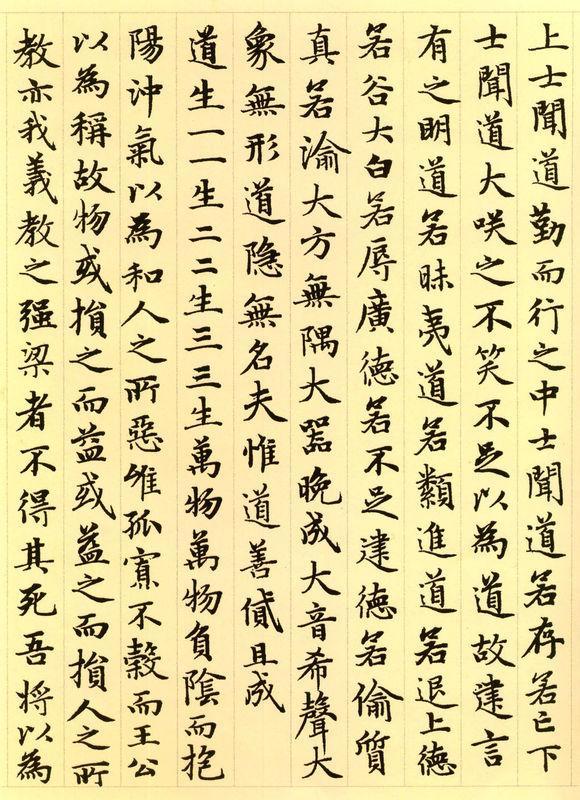 上士聞道勤而行之中士聞道若存若亡下
士聞道大咲之不笑不足以為道故建言
有之明道若昧夷道若纇進道若退上德
若谷大白若辱廣德若不足建德若偷質
真若渝大方無隅大器晚成大音希聲大
象無形道隐無名夫惟道善貸且成
道生一一生二二生三三生萬物萬物負陰而抱
陽沖氣以為和人之所惡唯孤寡不穀而王公
以為稱故物或損之而益或益之而損人之所
教亦我義教之强梁者不得其死吾将以為